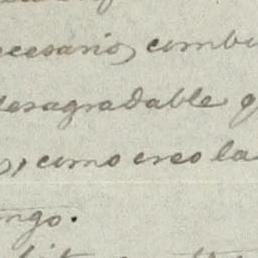 ecesario, combi
desagradable q
, como creo la
ngo.